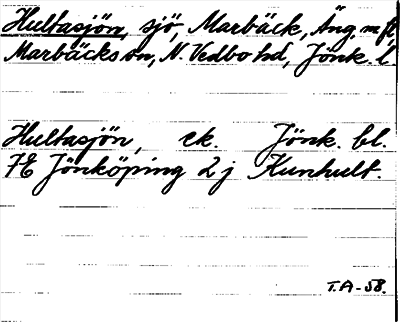 Hultasjön, sjö, Marbäck, Äng. m. fl.
Marbäcks sn, N. Vedbo hd, Jönk. l.
Hultasjön, ek. Jönk. bl.
7E Jönköping 2 j Kunhult.
T.A-58.